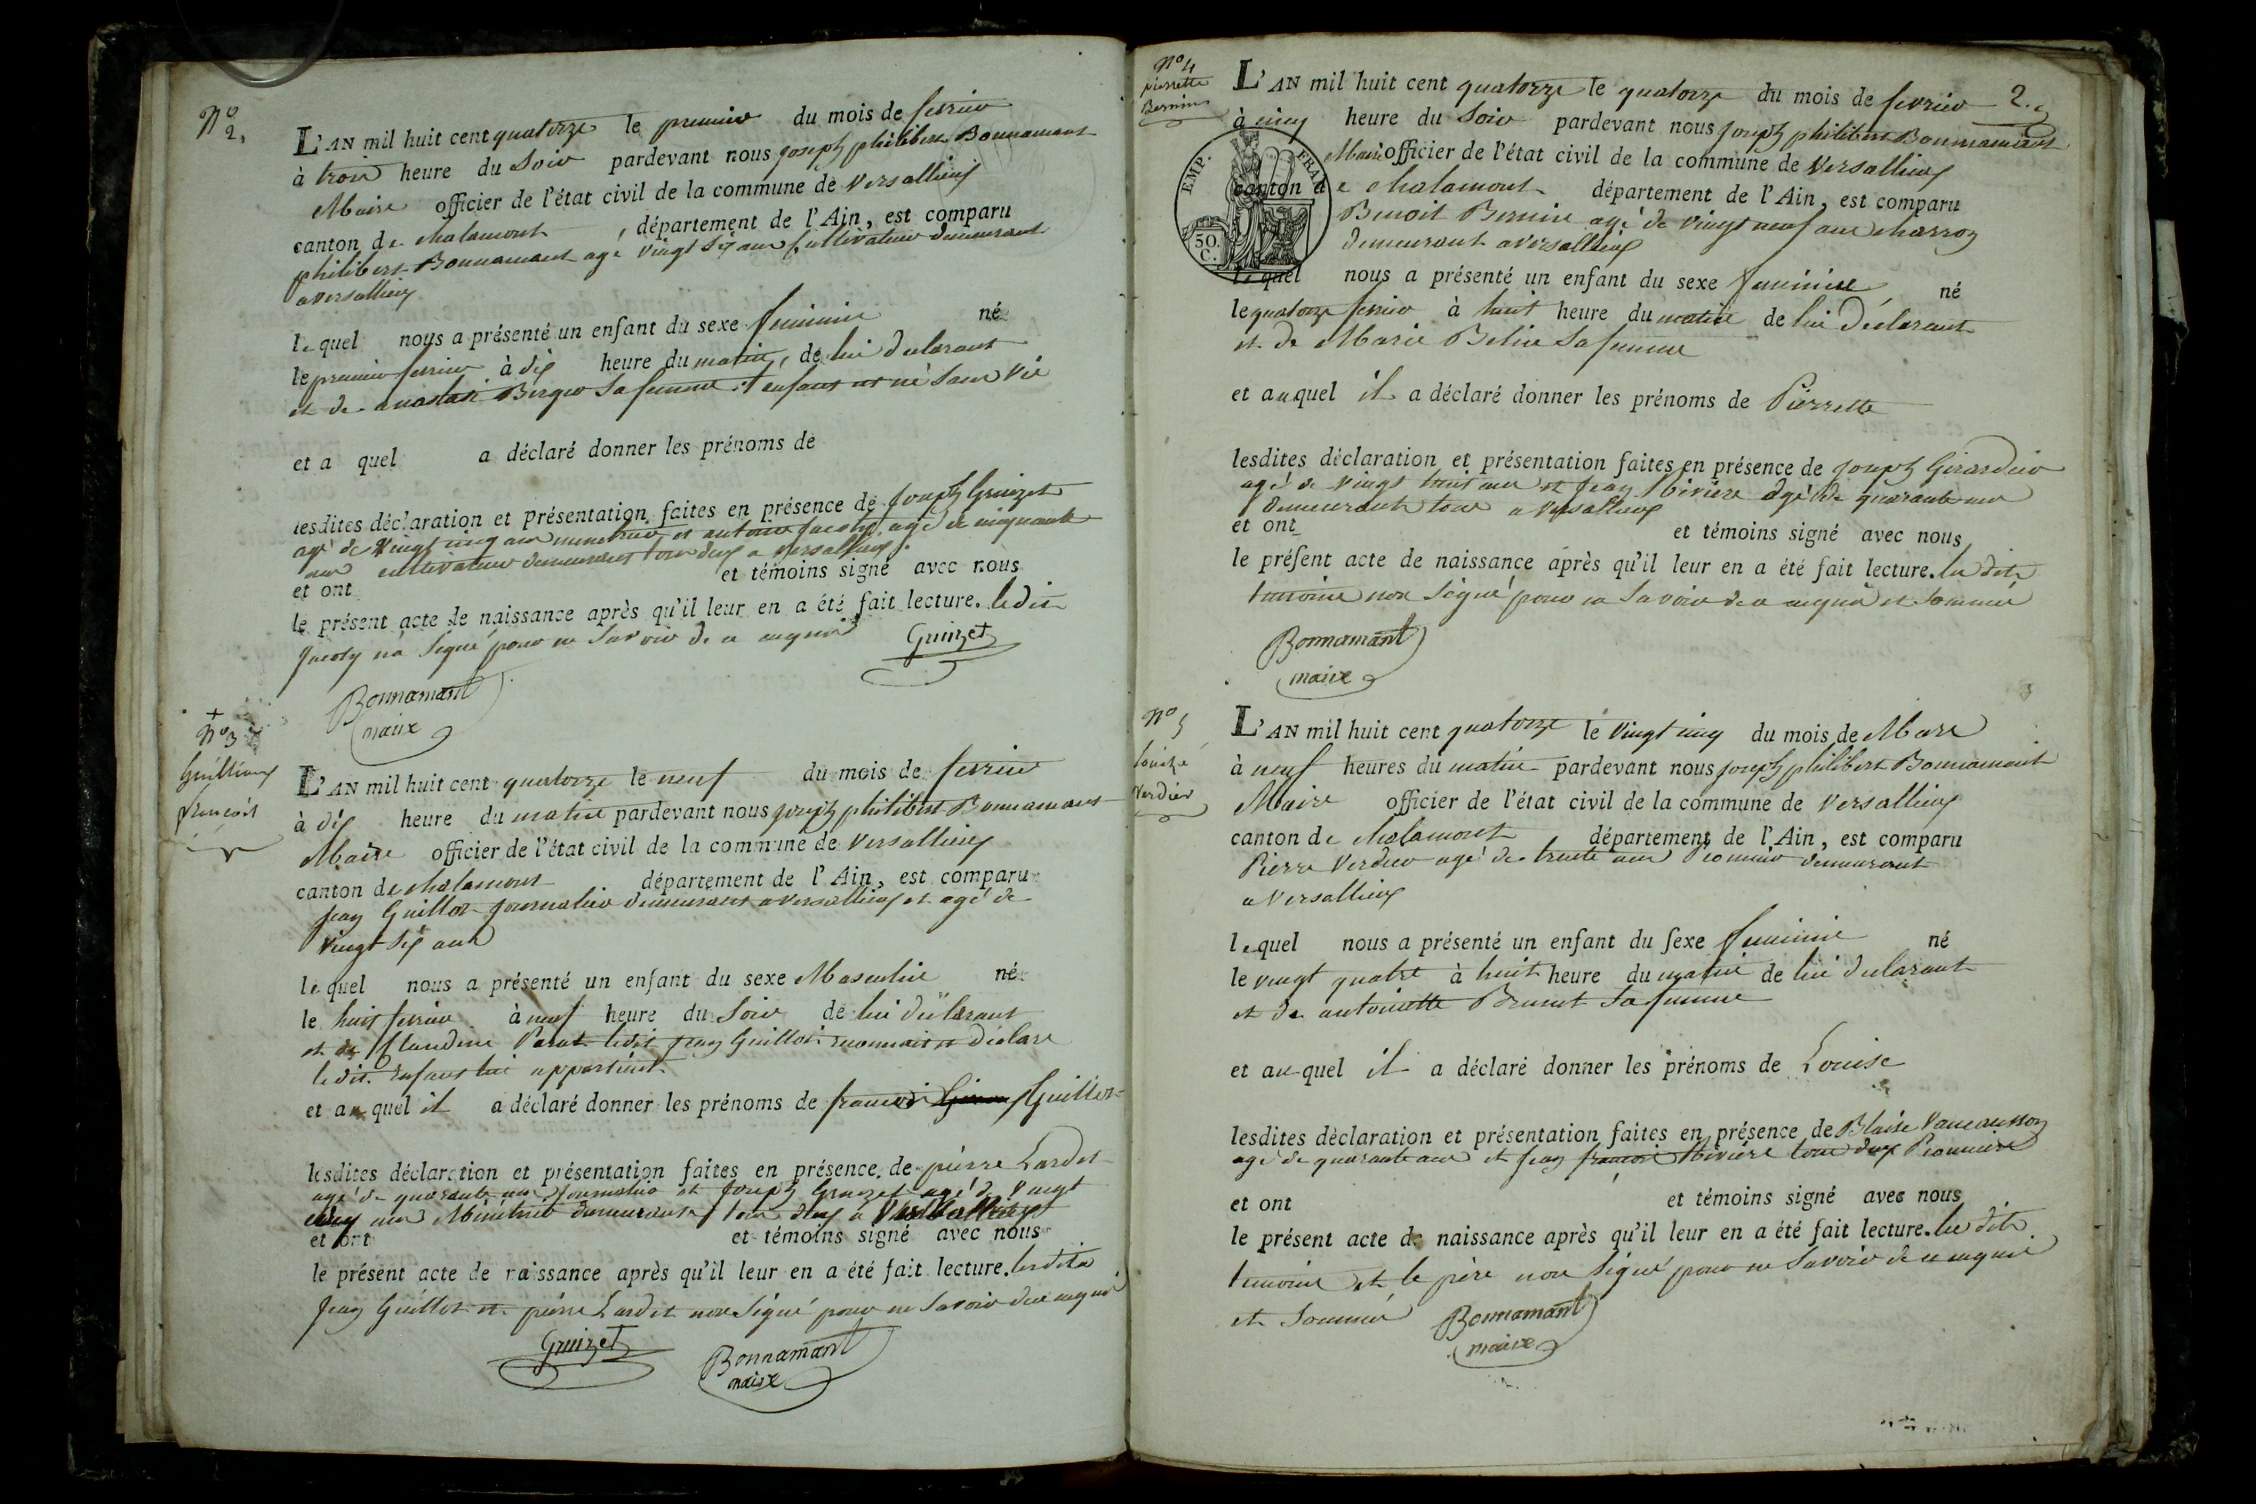 N° 2.
L'AN mil huit cent quatorze le premier du mois de fevrier
à trois heure du Soir pardevant nous joseph philibert Bonnamant
Maire officier de l'état civil de la commune de versallieux
canton de chalamont, département de l'Ain, est comparu
philibert Bonnamant agé vingt six ans Cultivateur demeurant
a versallieux
lequel nous a présenté un enfant du sexe feminin né
le premier fevrier à dix heure du matin, de lui declarant
et de anastasi Berger Sa femme l'enfant est né Sans vie
et a quel a déclaré donner les prénoms de
lesdites déclaration et présentation faites en présence de joseph Gruizet
agé de vingt cinq ans menetrier et antoine jacoty agé de cinquante
ans cultivateur demeurant tous deux a versallieux.
et ont et témoins signé avec nous
le présent acte de naissance après qu'il leur en a été fait lecture. ledit
jacoty n'a Signé pour ne Savoir de ce enquis
Gruizet
Bonnamant
maire
+
N° 3
Guillion
francois
L'AN mil huit cent quatorze le neuf du mois de fevrier
à dix heure du matin pardevant nous joseph philibert Bonnamant
Maire officier de l'état civil de la commune de versallieux
canton de chalamont département de l'Ain, est comparu
jean Guillot journalier demeurant a versallieux et agé de
vingt six ans
lequel nous a présenté un enfant du sexe Masculin né
le huit fevrier à neuf heure du Soir de lui déclarant
et de Claudine Parat ledit jean Guillot reconnait et déclare
ledit Enfant lui appartient
et auquel il a déclaré donner les prénoms de francois Guillot
lesdites déclaration et présentation faites en présence de pierre Lardet
agé de quarante ans journalier et joseph Gruizet agé de vingt
cinq ans Ménétrié demeurant tous deux a Versallieux
et ont et témoins signé avec nous
le présent acte de naissance après qu'il leur en a été fait lecture. lesdits
jean Guillot et pierre Lardet non Signé pour ne Savoir de ce enquis
Gruizet
Bonnamant
maire
2.
N° 4
pierrette
Bernin
EMP. FRAN
50.
C.
L'AN mil huit cent quatorze le quatorze du mois de fevrier
à cinq heure du Soir pardevant nous joseph philibert Bonnamant
Maire officier de l'état civil de la commune de versallieux
canton de chalamont département de l'Ain, est comparu
Benoit Bernin agé de vingt neuf ans charron
demeurant a versallieux
lequel nous a présenté un enfant du sexe feminin né
le quatorze fevrier à huit heure du matin de lui déclarant
et de Marie Belin Sa femme
et auquel il a déclaré donner les prénoms de Pierrette
lesdites déclaration et présentation faites en présence de joseph Girardier
agé de vingt huit ans et jean Rivière agé de quarante ans
demeurant tous a versallieux
et ont et témoins signé avec nous
le présent acte de naissance après qu'il leur en a été fait lecture. les dits
temoins non Signé pour ne Savoir de ce enquis et Sommé
Bonnamant
maire
N° 5
Louise
Verdier
L'AN mil huit cent quatorze le vingt cinq du mois de Mars
à neuf heures du matin pardevant nous joseph philibert Bonnamant
Maire officier de l'état civil de la commune de versallieux
canton de chalamont département de l'Ain, est comparu
Pierre Verdier agé de trente ans Pionnier demeurant
a versallieux
lequel nous a présenté un enfant du sexe feminin né
le vingt quatre à huit heure du matin de lui declarant
et de antoinette Brunet Sa femme
et auquel il a déclaré donner les prénoms de Louise
lesdites déclaration et présentation faites en présence de Blaise Vaucansson
agé de quarante ans et jean francois Rivière tous deux Pionniers
et ont et témoins signé avec nous
le présent acte de naissance après qu'il leur en a été fait lecture. les dits
temoins et le père non Signé pour ne Savoir de ce enquis
et Sommé
Bonnamant
maire